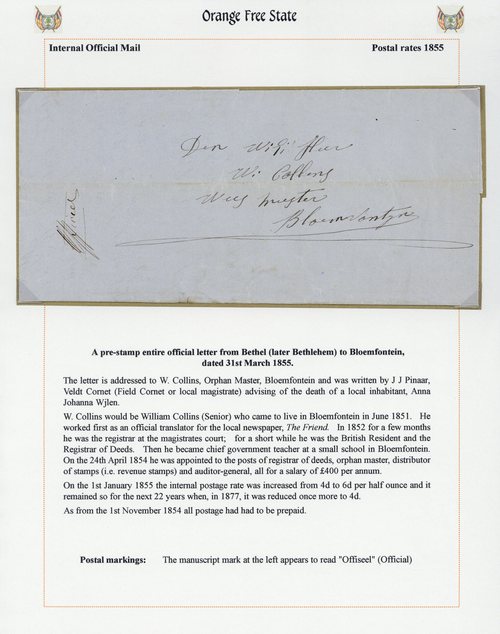 Orange Free State
Internal Official Mail
Postal rates 1855
Den
W. Collins
Wees
Bloemfontyn
A pre-stamp entire official letter from Bethel (later Bethlehem) to Bloemfontein,
dated 31st March 1855.
The letter is addressed to W. Collins, Orphan Master, Bloemfontein and was written by J J Pinaar,
Veldt Cornet (Field Cornet or local magistrate) advising of the death of a local inhabitant, Anna
Johanna Wjlen.
W. Collins would be William Collins (Senior) who came to live in Bloemfontein in June 1851. He
worked first as an official translator for the local newspaper, The Friend. In 1852 for a few months
he was the registrar at the magistrates court; for a short while he was the British Resident and the
Registrar of Deeds. Then he became chief government teacher at a small school in Bloemfontein.
On the 24th April 1854 he was appointed to the posts of registrar of deeds, orphan master, distributor
of stamps (i.e. revenue stamps) and auditor-general, all for a salary of £400 per annum.
On the 1st January 1855 the internal postage rate was increased from 4d to 6d per half ounce and it
remained so for the next 22 years when, in 1877, it was reduced once more to 4d.
As from the 1st November 1854 all postage had had to be prepaid.
Postal markings: The manuscript mark at the left appears to read "Offiseel" (Official)